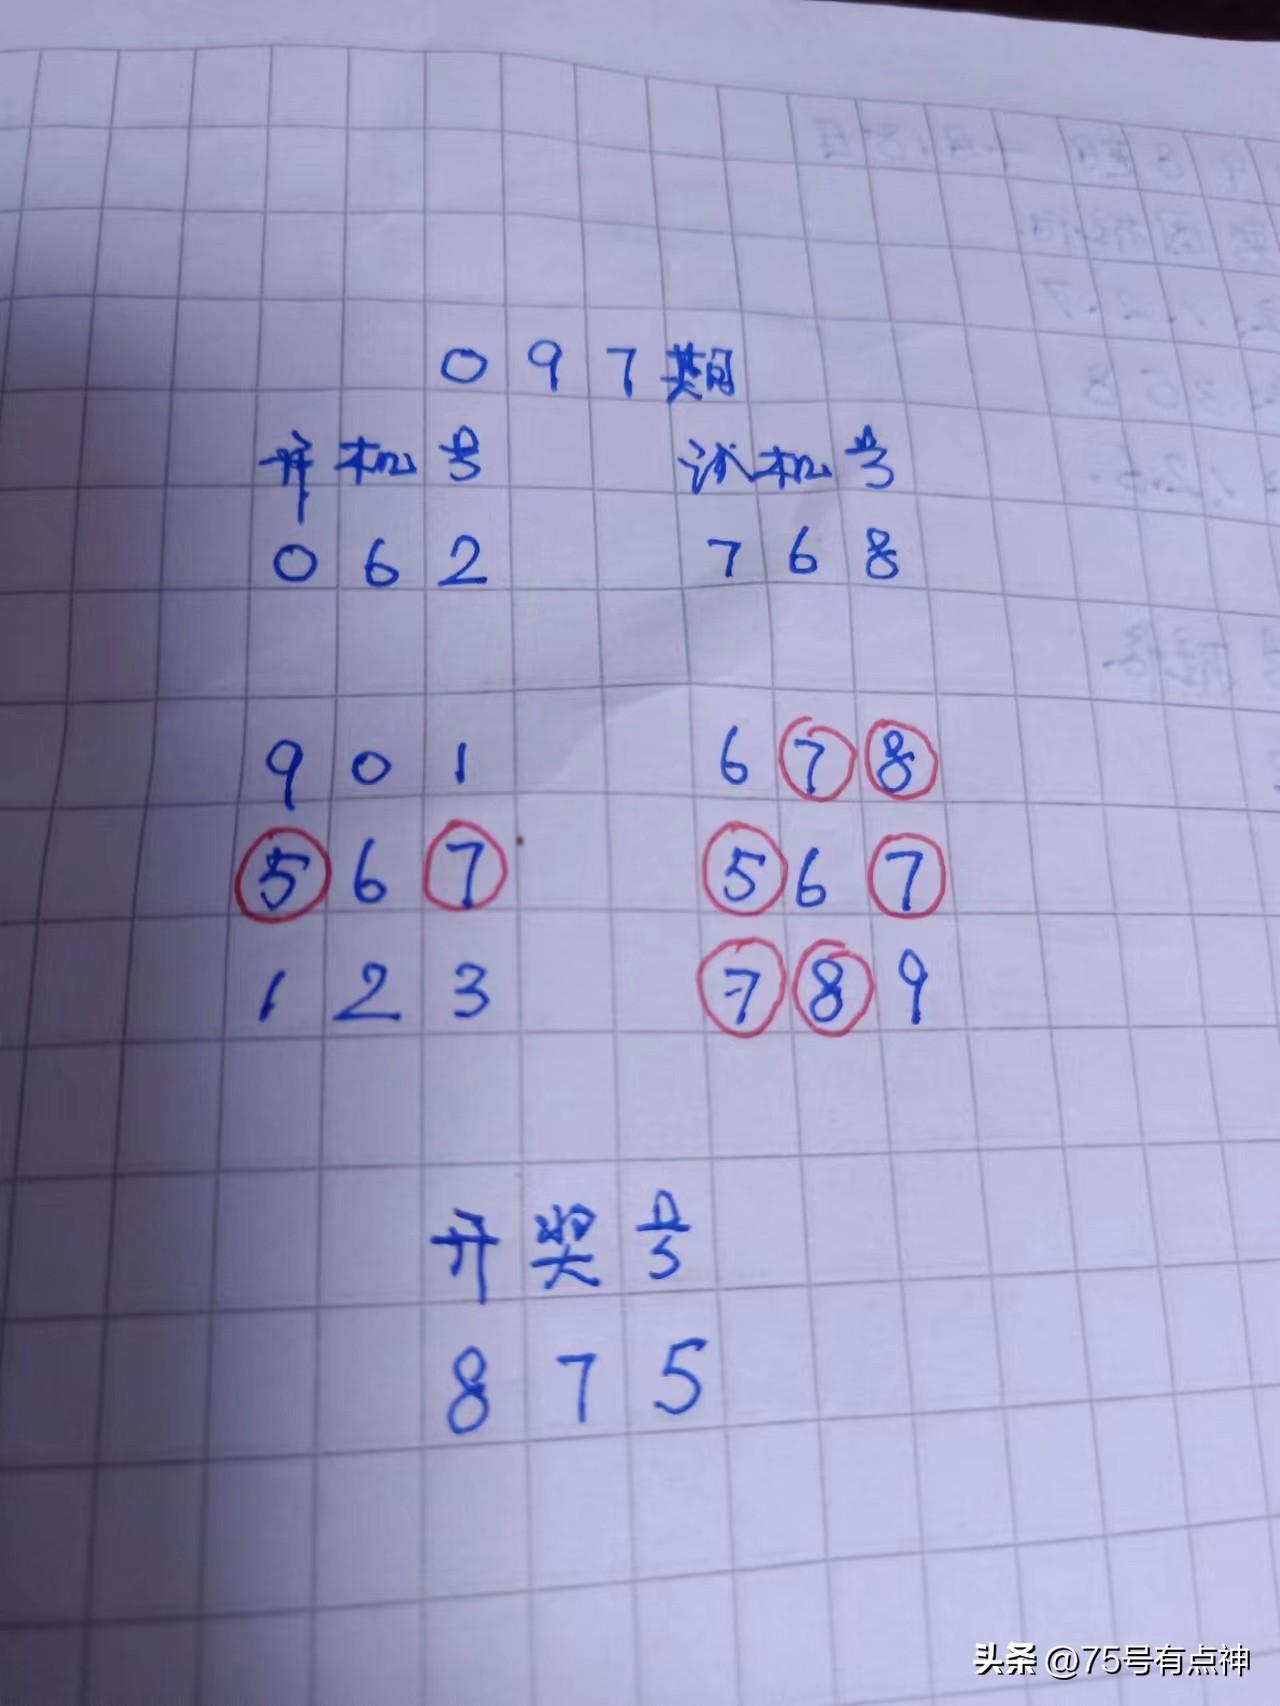 097期
开机号 试机号
062 768
901 678
567 567
123 789
开奖号
875
头条 @75号有点神